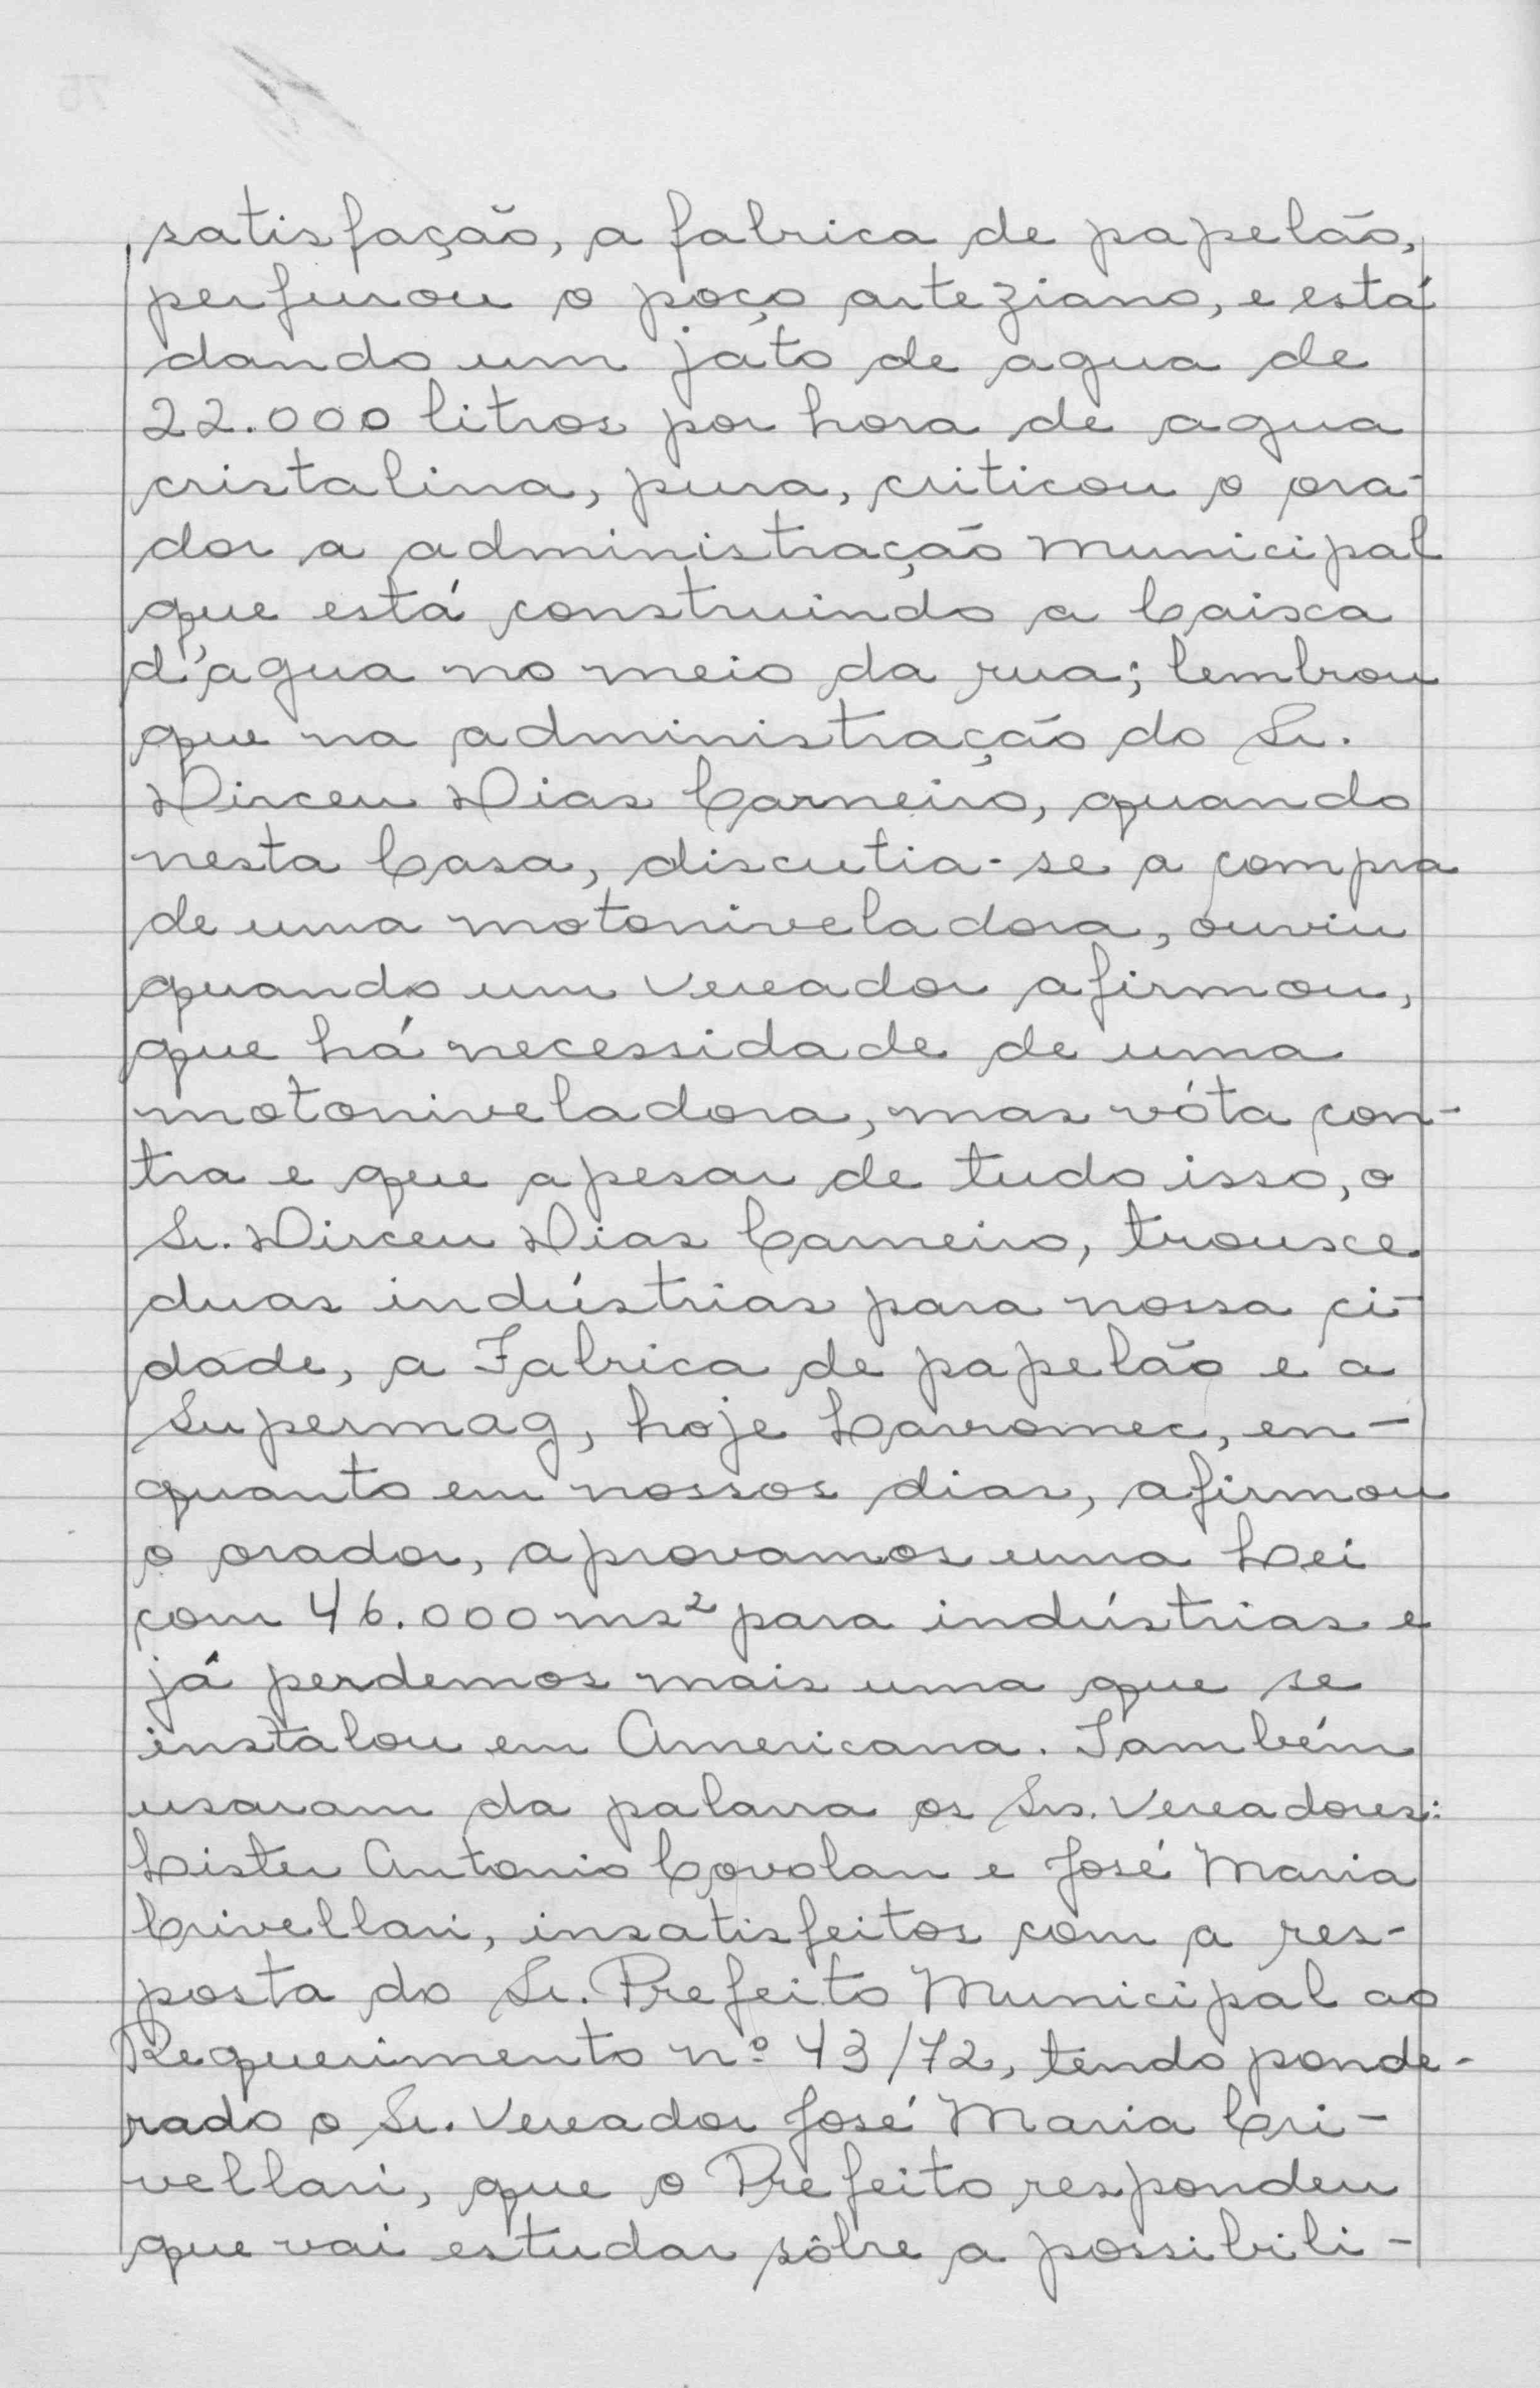 satisfação, a fabrica de papelão,
perfurou o poço arteziano, e está
dando um játo de agua de
22.000 litros por hora de agua
cristalina, pura, criticou o ora-
dor a administração municipal
que está construindo a Caixa
d'agua no meio da rua; lembrou
que na administração do Sr.
Dirceu Dias Carneiro, quando
nesta Casa, discutia-se a compra
de uma motoniveladora, ouviu
quando um vereador afirmou,
que há necessidade de uma
motoniveladora, mas vóta con-
tra e que apesar de tudo isso, o
Sr. Dirceu Dias Carneiro, trouxe
duas indústrias para nossa ci-
dade, a Fabrica de papelão e a
Supermag, hoje Lavromec, en-
quanto em nossos dias, afirmou
o orador, aprovamos uma Lei
com 46.000 ms² para indústrias e
já perdemos mais uma que se
instalou em Americana. Também
usaram da palavra os Srs. Vereadores:
Lister Antonio Covolan e José Maria
Crivellari, insatisfeitos com a res-
posta do Sr. Prefeito Municipal ao
Requerimento nº 43/72, tendo ponde-
rado o Sr. Vereador José Maria Cri-
vellari, que o Prefeito respondeu
que vai estudar sôbre a possibili-